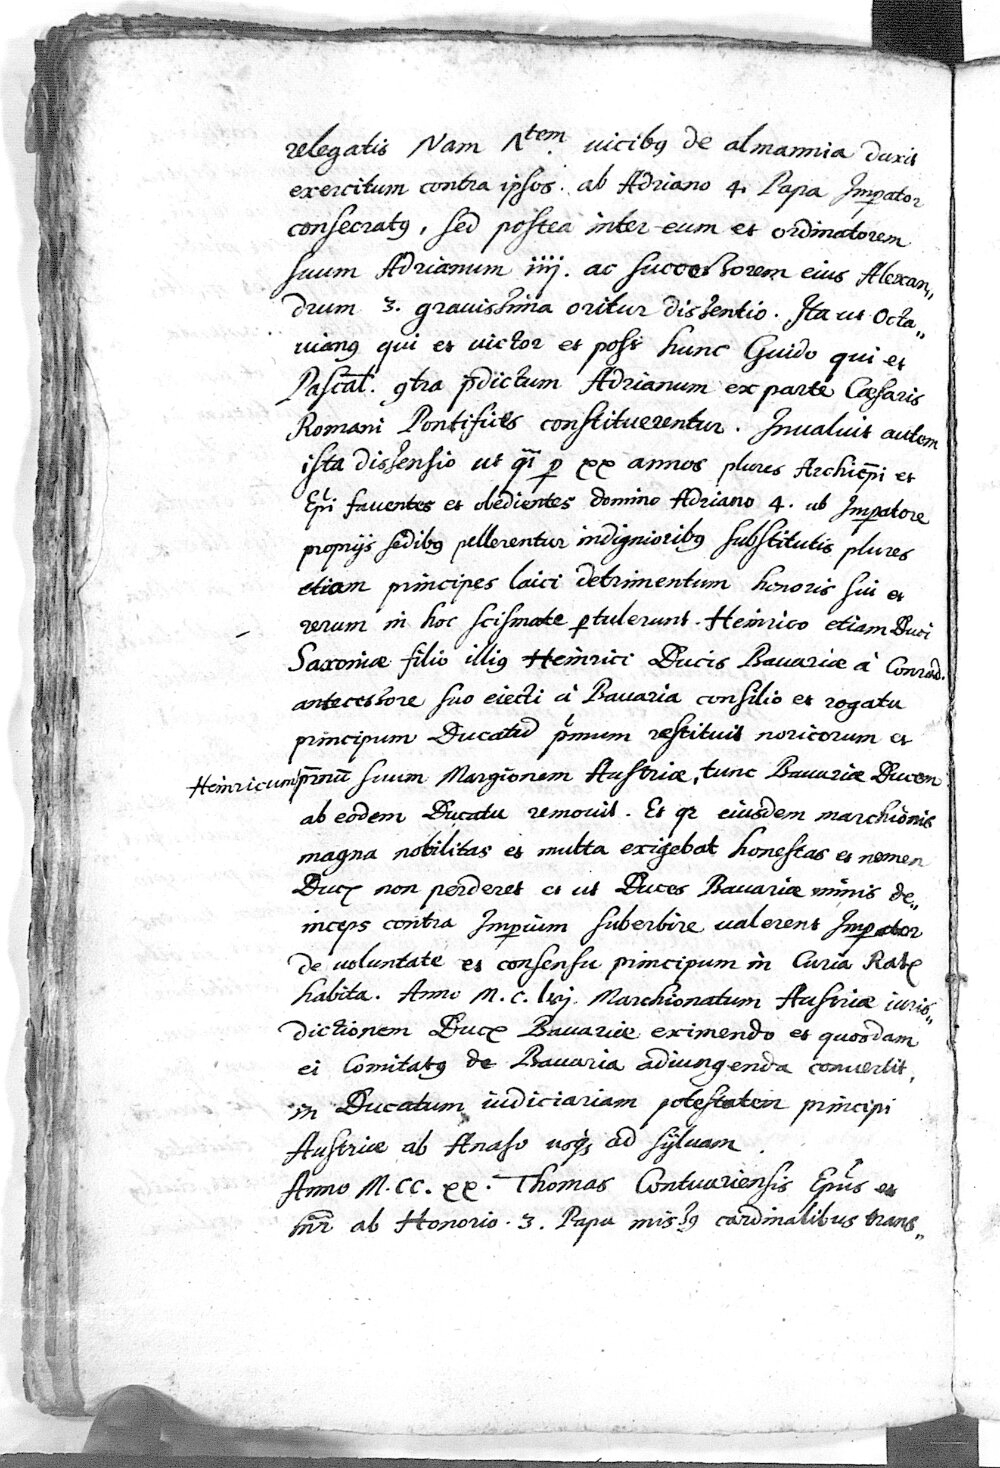 relegatis Nam Λtem. uicibꝰ de almannia duxit
exercitum contra ipsos. ab Adriano 4. Papa Imp̱ator
consecratꝰ, sed postea inter eum et ordinatorem
suum Adrianum iiij. ac successorem eius Alexan„
drum 3. gravissima oritur dissentio. Ita ut Octa„
uianꝰ qui et uictor et post hunc Guido qui et
Pascal. ꝯtra p̄dictum Adrianum ex parte Cæsaris
Romani Pontifices constituerentur. Inualuit autem
ista dissensio ut qi̅ ꝑ xx annos plures Archiep̄i et
Ep̄i fauentes et obedientes domino Adriano 4. ab Imp̱atore
proprijs sedibꝰ pellerentur indignioribꝰ substitutis plures
etiam principes laici detrimentum honoris sui et
rerum in hoc scismate ꝑtulerunt. Heinrico etiam Duci
Saxoniæ filio illiꝰ Heinrici Ducis Bauariæ à Conrad.
antecessore suo eiecti à Bauaria consilio et rogatu
principum Ducatū pͥmum restituit noricorum et
Heinricum pr̄nū suum Margionem Austriæ, tunc Bauariæ Ducem
ab eodem Ducatu remouit. Et qꝛ eiusdem marchionis
magna nobilitas et multa exigebat honestas et nomen
Ducꝭ non perderet et ut Duces Bauariæ minis de„
inceps contra Imp̱ium suberbire ualerent Imp̱ator
de uoluntate et consensu principum in Curia Ratꝭ
habita. Anno M. C. lvj. Marchionatum Austriæ iuris„
dictionem Ducꝭ Bauariæ eximendo et quosdam
ei Comitatꝰ de Bauaria adiungenda conuertit,
in Ducatum iudiciariam potestatem principi
Austriæ ab Anaso usqꝫ ad syluam.
Anno M. CC. xx. Thomas Contuariensis Ep̄us et
mr̄ ab Honorio. 3. Papa missꝰ cardinalibus trans„